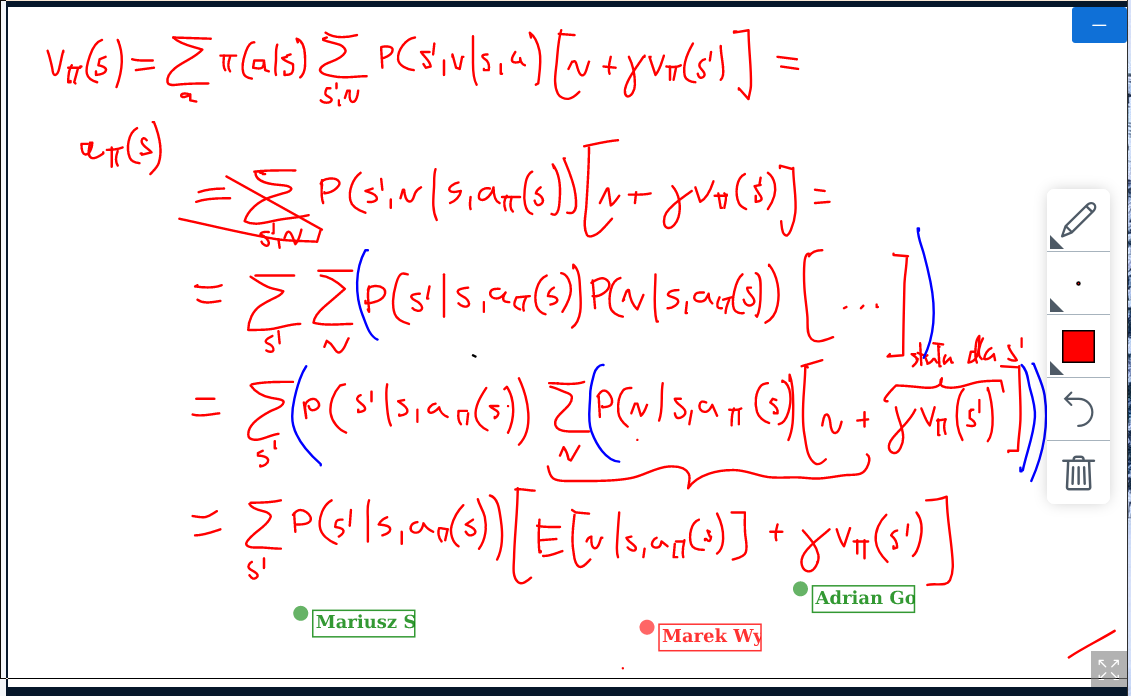 Vπ(s) = Σ_a π(a|s) Σ_{s',r} P(s',r|s,a) [r + γVπ(s')] =
aπ(s)
= Σ_{s',r} P(s',r|s,aπ(s)) [r + γVπ(s')] =
= Σ_{s'} Σ_r (P(s'|s,aπ(s)) P(r|s,aπ(s)) [...])
stała dla s'
= Σ_{s'} (P(s'|s,aπ(s)) Σ_r (P(r|s,aπ(s)) [r + γVπ(s')]))
= Σ_{s'} P(s'|s,aπ(s)) [E[r|s,aπ(s)] + γVπ(s')]
Adrian Go
Mariusz S
Marek Wy